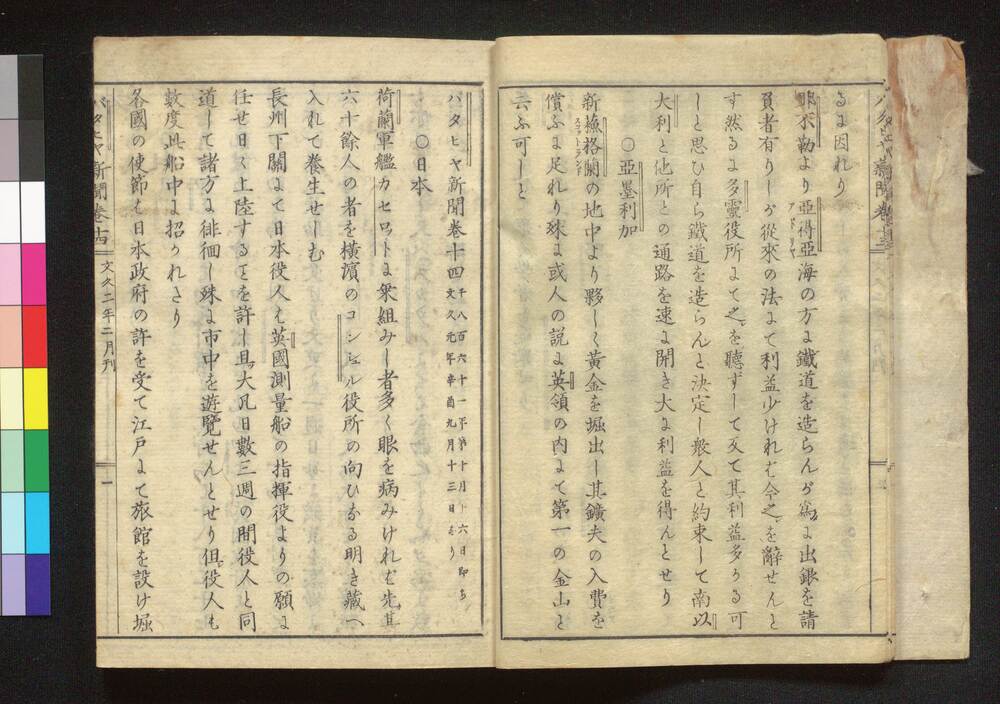 るに因れり
耶木勒より亞得亞海の方に鐵道を造らんが爲に出銀を請
負者有りしが從來の法にて利益少けれむ今之を辭せんと
す然るに多靈役所にて之を聽ずして反て其利益多かる可
しと思ひ自ら鐵道を造らんと決定し般人と約束して南以
大利と他所との通路を速に開き大に利益を得んとせり
○亞墨利加
新蘓格蘭の地中より夥しく黃金を堀出し其鑛夫の入費を
償ふに足れり殊に或人の説に英領の内にて第一の金山と
云ふ可しと
バタヒヤ新聞卷十四 千八百六十一年第十月十六日即ち文久元年辛酉九月十三日なり
○日本
荷蘭軍艦カセロットに乘組みし者多く眼を病みければ先其
六十餘人の者を橫濱のコンシュル役所の向ひなる明き藏へ
入れて養生せしむ
長州下關にて日本役人も英國測量船の指揮役よりの願に
任せ日々上陸することを許し且大凡日數三週の間役人と同
道して諸方に徘徊し殊に市中を遊覽せんとせり但役人も
數度此船中に招かれたり
各國の使節も日本政府の許を受て江戸にて旅館を設け堀
バタヒヤ新聞卷十四 文久二年二月刊 一